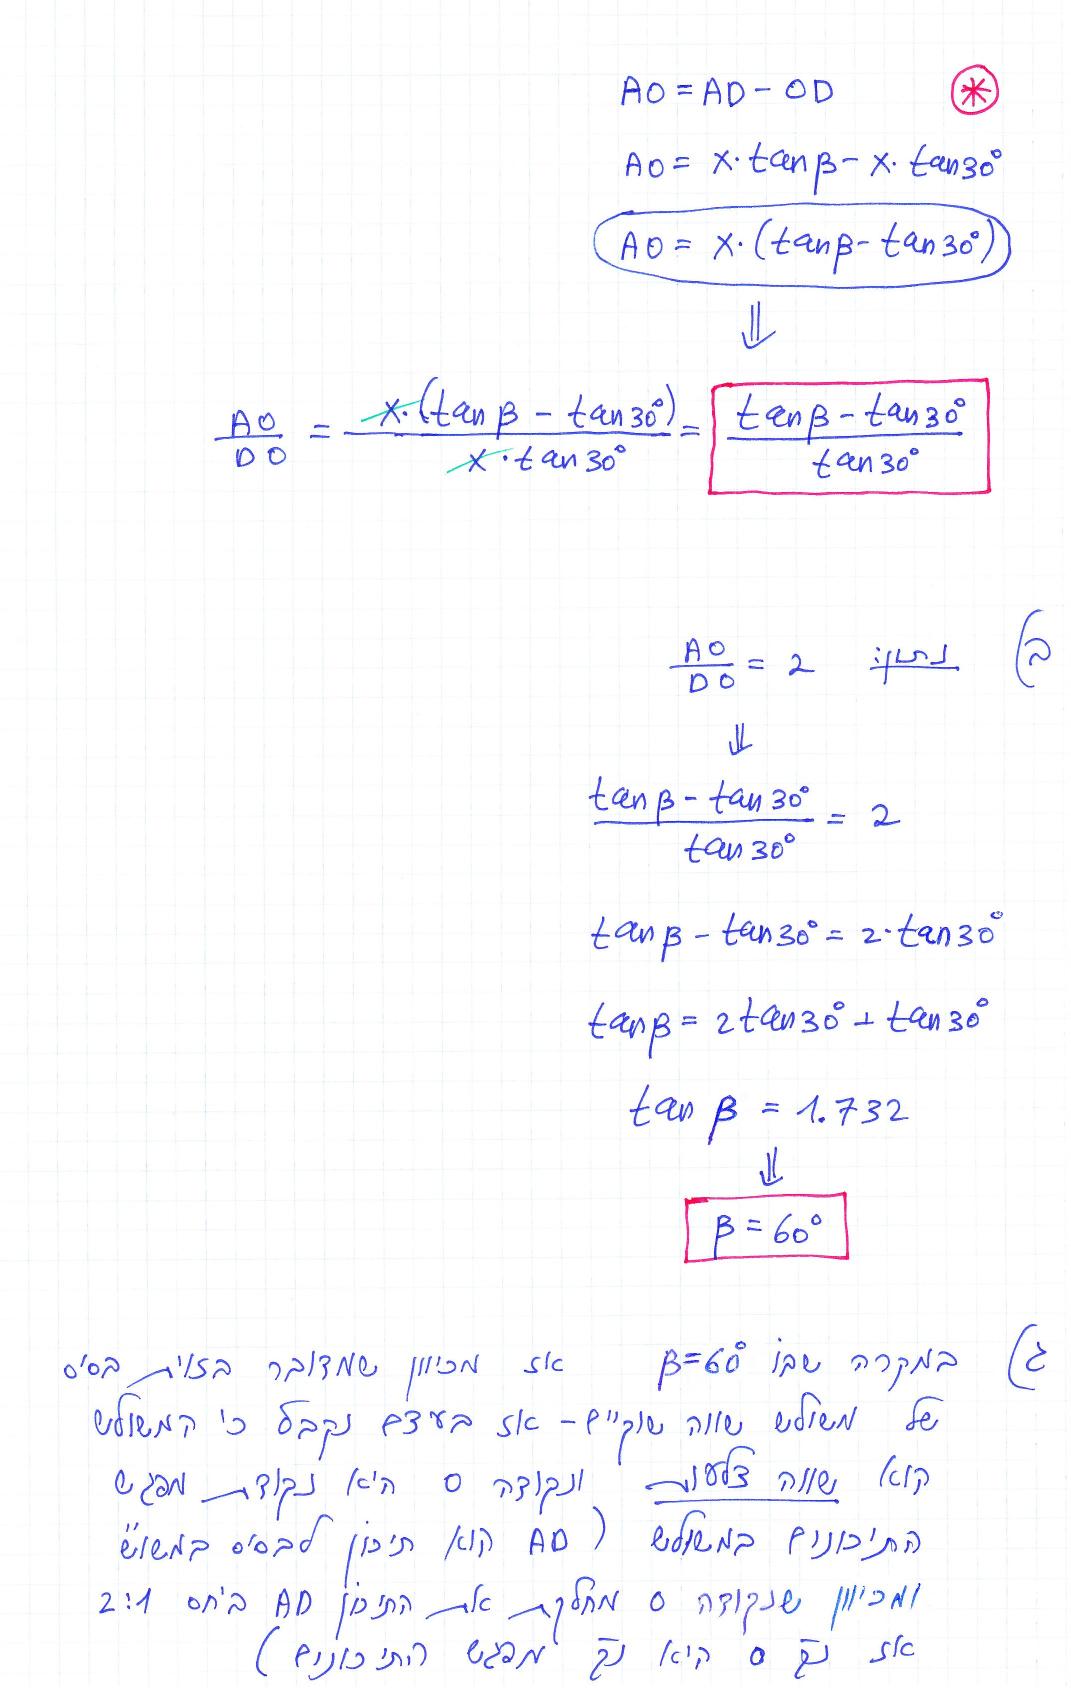 AO = AD - OD ⊛
AO = x·tanβ - x·tan30°
AO = x·(tanβ - tan30°)
⇓
AO/DO = x·(tanβ - tan30°)/x·tan30° = (tanβ - tan30°)/tan30°
ב) נתון: AO/DO = 2
⇓
(tanβ - tan30°)/tan30° = 2
tanβ - tan30° = 2·tan30°
tanβ = 2tan30° + tan30°
tanβ = 1.732
⇓
β = 60°
ג) במקרה שבו β=60° אז מכיוון שמדובר בזוית בסיס
של משולש שווה שוקיים - אז בעצם נקבל כי המשולש
הוא שווה צלעות ונקודה O היא נקודת מפגש
התיכונים במשולש (AD הוא תיכון לבסיס במשו"ש
ומכיוון שנקודה O מחלקת את התיכון AD ביחס 2:1
אז נק' O היא נק' מפגש התיכונים)